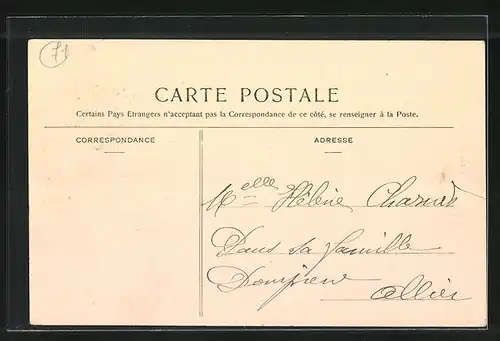 71
CARTE POSTALE
Certains Pays Etrangers n'acceptant pas la Correspondance de ce côté, se renseigner à la Poste.
CORRESPONDANCE
ADRESSE
Melle Hélène
Dans sa famille
Allier